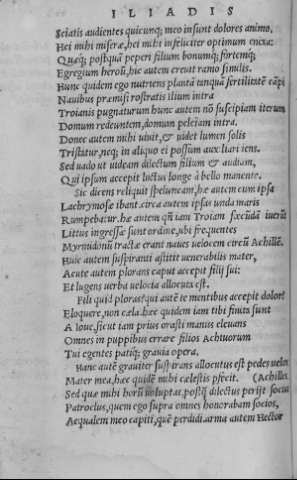 ILIADIS
Sciatis audientes quicunq; meo insunt dolores animo,
Hei mihi miseræ, hei mihi infeliciter optimum enixa:
Quæq; postquã peperi filium bonumq; fortemq;
Egregium heroũ, hic autem creuit ramo similis.
Hunc quidem ego nutriens plantã tanquã fertilitatẽ cãpi
Nauibus præmisi rostratis ilium intra
Troianis pugnaturum hunc autem nõ suscipiam iterum
Domum redeuntem, domum peleiam intra.
Donec autem mihi uiuit, & uidet lumen solis
Tristatur, neq; in aliquo ei possum auxiliari iens.
Sed uado ut uideam dilectum filium & audiam,
Qui ipsum accepit luctus longe à bello manente.
Sic dicens reliquit speluncam, hæ autem cum ipsa
Lachrymosæ ibant. circa autem ipsas unda maris
Rumpebatur. hæ autem qũ iam Troiam fœcũdã
Littus ingressæ sunt ordine, ubi frequentes
Myrmidonũ tractæ erant naues uelocem circũ Achillẽ.
Huic autem suspiranti astitit uenerabilis mater,
Acute autem plorans caput accepit filij sui:
Et lugens uerba uelocia allocuta est.
Fili quid ploras? qui autẽ te mentibus accepit dolor?
Eloquere, non cæla. hæc quidem iam tibi finita sunt
A Ioue, sicut iam prius orasti manus eleuans
Omnes in puppibus errare filios Achiuorum
Tui egentes patiq; grauia opera.
Hanc autẽ grauiter suspirans allocutus est pedes uelox
Mater mea, hæc quidẽ mihi cælestis pfecit. (Achilles
Sed quæ mihi horũ uoluptas, postq̃ dilectus perijt socius
Patroclus, quem ego supra omnes honorabam socios,
Aequalem meo capiti, quẽ perdidi. arma autem Hector